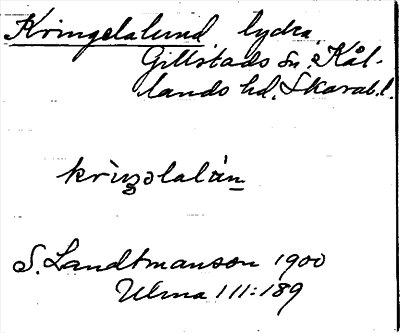 Kringelalund lydra,
Gillstads sn. Kål-
lands hd. Skarab.l.
krìŋəlalán
S. Landtmanson 1900
Ulma 111:189